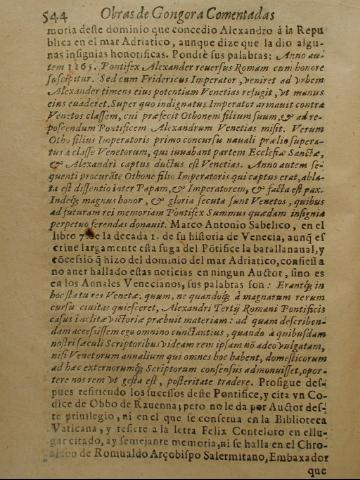 544 Obras de Gongora Comentadas
moria deste dominio que concedio Alexandro à la Repu
blica en el mar Adriatico, aunque dize que la dio algu-
nas insignias honorificas. Pondrè sus palabras: Anno au-
tem 1165. Pontifex Alexander reuersus Romam cum honore
suscipitur. Sed cum Fridericus Imperator, veniret ad vrbem
Alexander timens eius potentiam Venetias refugit, vt manus
eius euaderet. Super quo indignatus Imperator armauit contra
Venetos classem, cui præfecit Othonem filium suum, & ad re-
poscendum Pontificem Alexandrum Venetias misit. Verum
Otho filius Imperatoris primo concursu nauali prælio supera-
tus à classe Venetorum, qui iuuabant partem Ecclesiæ Sanctæ,
& Alexandri captus ductus est Venetias. Anno autem se-
quenti procurãte Othone filio Imperatoris qui captus erat, abla-
ta est dissentio inter Papam, & Imperatorem, & facta est pax.
Indeq; magnus honor, & gloria secuta sunt Venetos, quibus
ad futuram rei memoriam Pontifex Summus quædam insignia
perpetuo ferendas donauit. Marco Antonio Sabelico, en el
libro 7. de la decada 1. de su historia de Venecia, aunq es
criue largamente esta fuga del Pōtifice la batalla naual, y
cōcessiō q̃ hizo del dominio del mar Adriatico, confiessa
no auer hallado estas noticias en ningun Auctor, sino es
en los Annales Venecianos, sus palabras son: Erantq; in
hoc statu res Venetæ, quum, ne quandoq; à magnatum rerum
cursu ciuitas quiesceret, Alexandri Tertij Romani Pontificis
casus inclitæ victoriæ præbuit materiam: ad quam describen-
dam accessissem ego omnino cunctantius, quando à quibusdam
nostri sæculi Scriptoribus videam rem ipsam nō adeo vulgatam,
nisi Venetorum annalium quos omnes hoc habent, domesticorum
ad hæc externorumq; Scriptorum consensus admonuisset, opor-
tere nos rem vt gesta est, posteritate tradere. Prosigue des-
pues refiriendo los sucessos deste Pontifice, y cita vn Co-
dice de Obbo de Rauena; pero no le da por Auctor des-
te priuilegio, ni en el que se conserua en la Biblioteca
Vaticana, y refiere a la letra Felix Conteloro en el lu-
gar citado, ay semejante memoria, ni se halla en el Chro-
nicon de Romualdo Arçobispo Salermitano, Embaxador
que